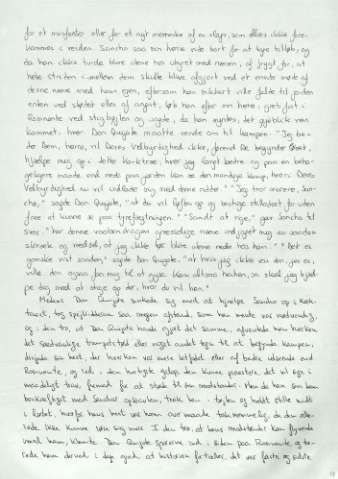 for et misfoster eller for et nyt menneske af en slags, som ellers ikke fore-
kommer i verden. Sancho saa sin herre ride bort for at tage tilløb, og
da han ikke turde blive alene med næsen, af frygt for, at
hele striden imellem dem skulle blive afgjort ved et eneste møde af
denne næse med han egen, eftersom han sikkert ville falde til jorden
enten ved stødet eller af angst, løb han efter sin herre, greb fast i
Rosinante ved stigbøjlen og sagde, da han syntes, det øjeblik var
kommet, hvor Don Quijote maatte vende om til kampen: "Jeg be-
der Dem, herre, vil Deres Velbyrdighed ikke, førend De begynder
hjælpe mig op i dette korktræ, hvor jeg langt bedre og paa en beha-
geligere maade end nede paa jorden kan se den mandige kamp, hvori Deres
Velbyrdighed nu vil indlade sig med denne ridder." "Jeg tror snarere, San-
cho," sagde Don Quijote, "at du vil op og bestige stilladset for uden
fare at kunne se paa tyrefægtningen." "Sandt at sige," gav Sancho til
svar, "har denne vaabendragers græsselige næse indjaget mig saa megen
skræk og rædsel, at jeg ikke tør blive alene nede hos ham." "Det er
ganske vist sandt," sagde Don Quijote, "at hvis jeg ikke var den, jeg er,
ville den ogsaa faa mig til at gyse. Kom altsaa herhen, saa skal jeg hjæl-
pe dig med at stige op der, hvor du vil hen."
Medens Don Quijote sinkede sig med at hjælpe Sancho op i kork-
træet, tog spejlridderen saa megen afstand, som han mente var nødvendig,
og i den tro, at Don Quijote havde gjort det samme, afventede han hverken
trompetstød eller noget andet tegn til at begynde kampen,
drejede sin hest, der hverken var mere letfodet eller af bedre udseende end
Rosinante, og red i den hurtigste galop den kunne præstere, det vil sige i
maadeligt trav, fremad for at støde til sin modstander. Men da han saa ham
beskæftiget med Sanchos opklavren, trak han i tøjlen og holdt stille midt
i løbet, hvorfor hans hest var ham over maade taknemmelig, da den alle-
rede ikke kunne røre sig mere. I den tro, at hans modstander kom flyvende
imod ham, klemte Don Quijote sporerne ind i siden paa Rosinante og
drev ham derved i den grad, at historien fortæller, det var første og sidste